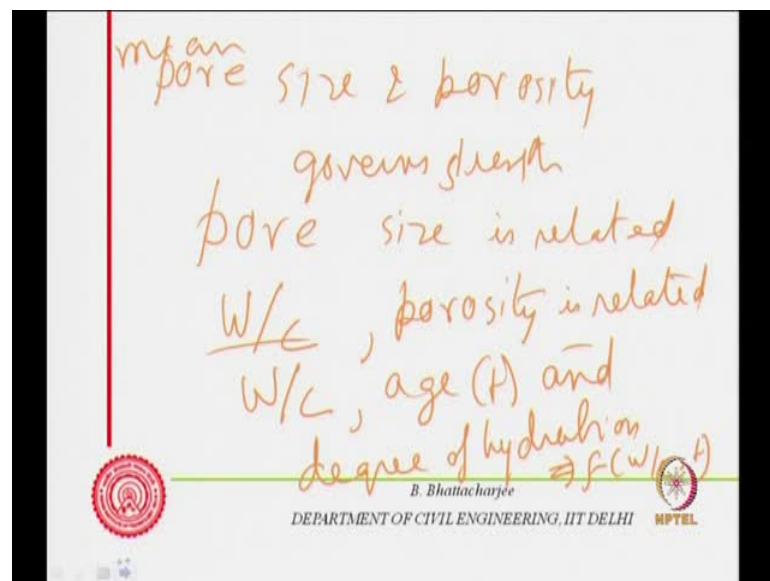 mean
pore size & porosity
governs strength
pore size is related
W/C, porosity is related
W/C, age (t) and
degree of hydration
⇒ f(W/C, t)
B. Bhattacharjee
DEPARTMENT OF CIVIL ENGINEERING, IIT DELHI
NPTEL